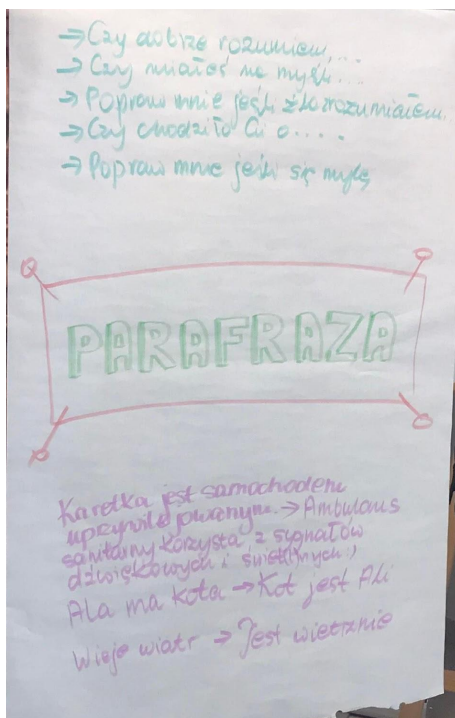 → Czy dobrze rozumiem,...
→ Czy miałeś na myśli...
→ Popraw mnie jeśli źle rozumiałem.
→ Czy chodziło Ci o.....
→ Popraw mnie jeśli się mylę
PARAFRAZA
Karetka jest samochodem
uprzywilejowanym. → Ambulans
sanitarny korzysta z sygnałów
dźwiękowych i świetlnych
Ala ma kota → Kot jest Ali
Wieje wiatr → Jest wietrznie